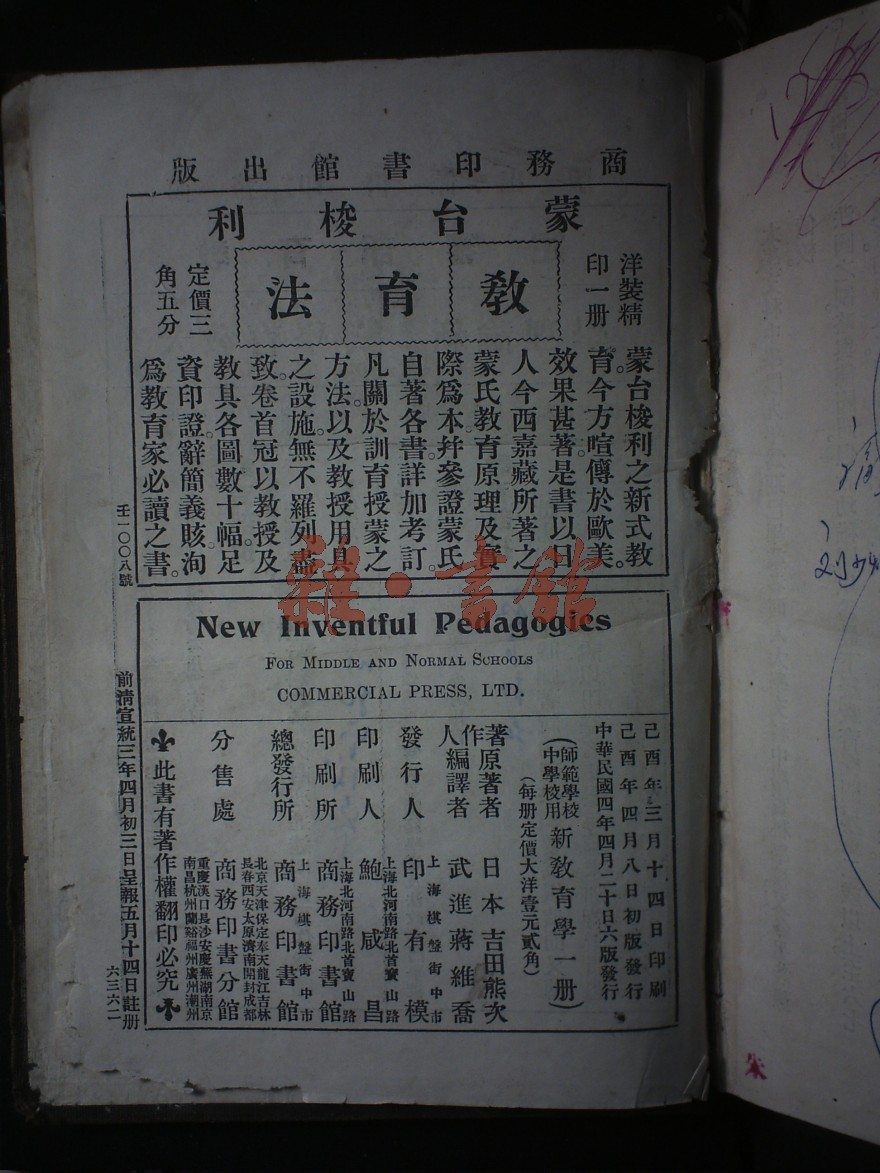 商務印書館出版
蒙台梭利
教育法
洋裝精
印一册
定價三
角五分
蒙台梭利之新式教
育。今方喧傳於歐美。
效果甚著。是書以日
人今西嘉藏所著之
蒙氏教育原理及實
際爲本。幷參證蒙氏
自著各書。詳加考訂。
凡關於訓育授蒙之
方法。以及教授用具
之設施。無不羅列盡
致。卷首冠以教授及
教具各圖數十幅。足
資印證。辭簡義賅。洵
爲教育家必讀之書。
壬一〇〇八號
雜·書館
New Inventful Pedagogics
FOR MIDDLE AND NORMAL SCHOOLS
COMMERCIAL PRESS, LTD.
己酉年三月十四日印刷
己酉年四月八日初版發行
中華民國四年四月二十日六版發行
(師範學校中學校用 新教育學一册)
(每册定價大洋壹元貳角)
著作人 原著者 日本吉田熊次
編譯者 武進蔣維喬
發行人 上海棋盤街中市 印有模
印刷人 上海北河南路北首寶山路 鮑咸昌
印刷所 上海北河南路北首寶山路 商務印書館
總發行所 上海棋盤街中市 商務印書館
分售處 北京天津保定奉天龍江吉林長春西安太原濟南開封成都 商務印書分館 重慶漢口長沙安慶蕪湖南京南昌杭州蘭谿福州廣州潮州
此書有著作權翻印必究
前清宣統三年四月初三日呈報五月十四日註册
六三六二